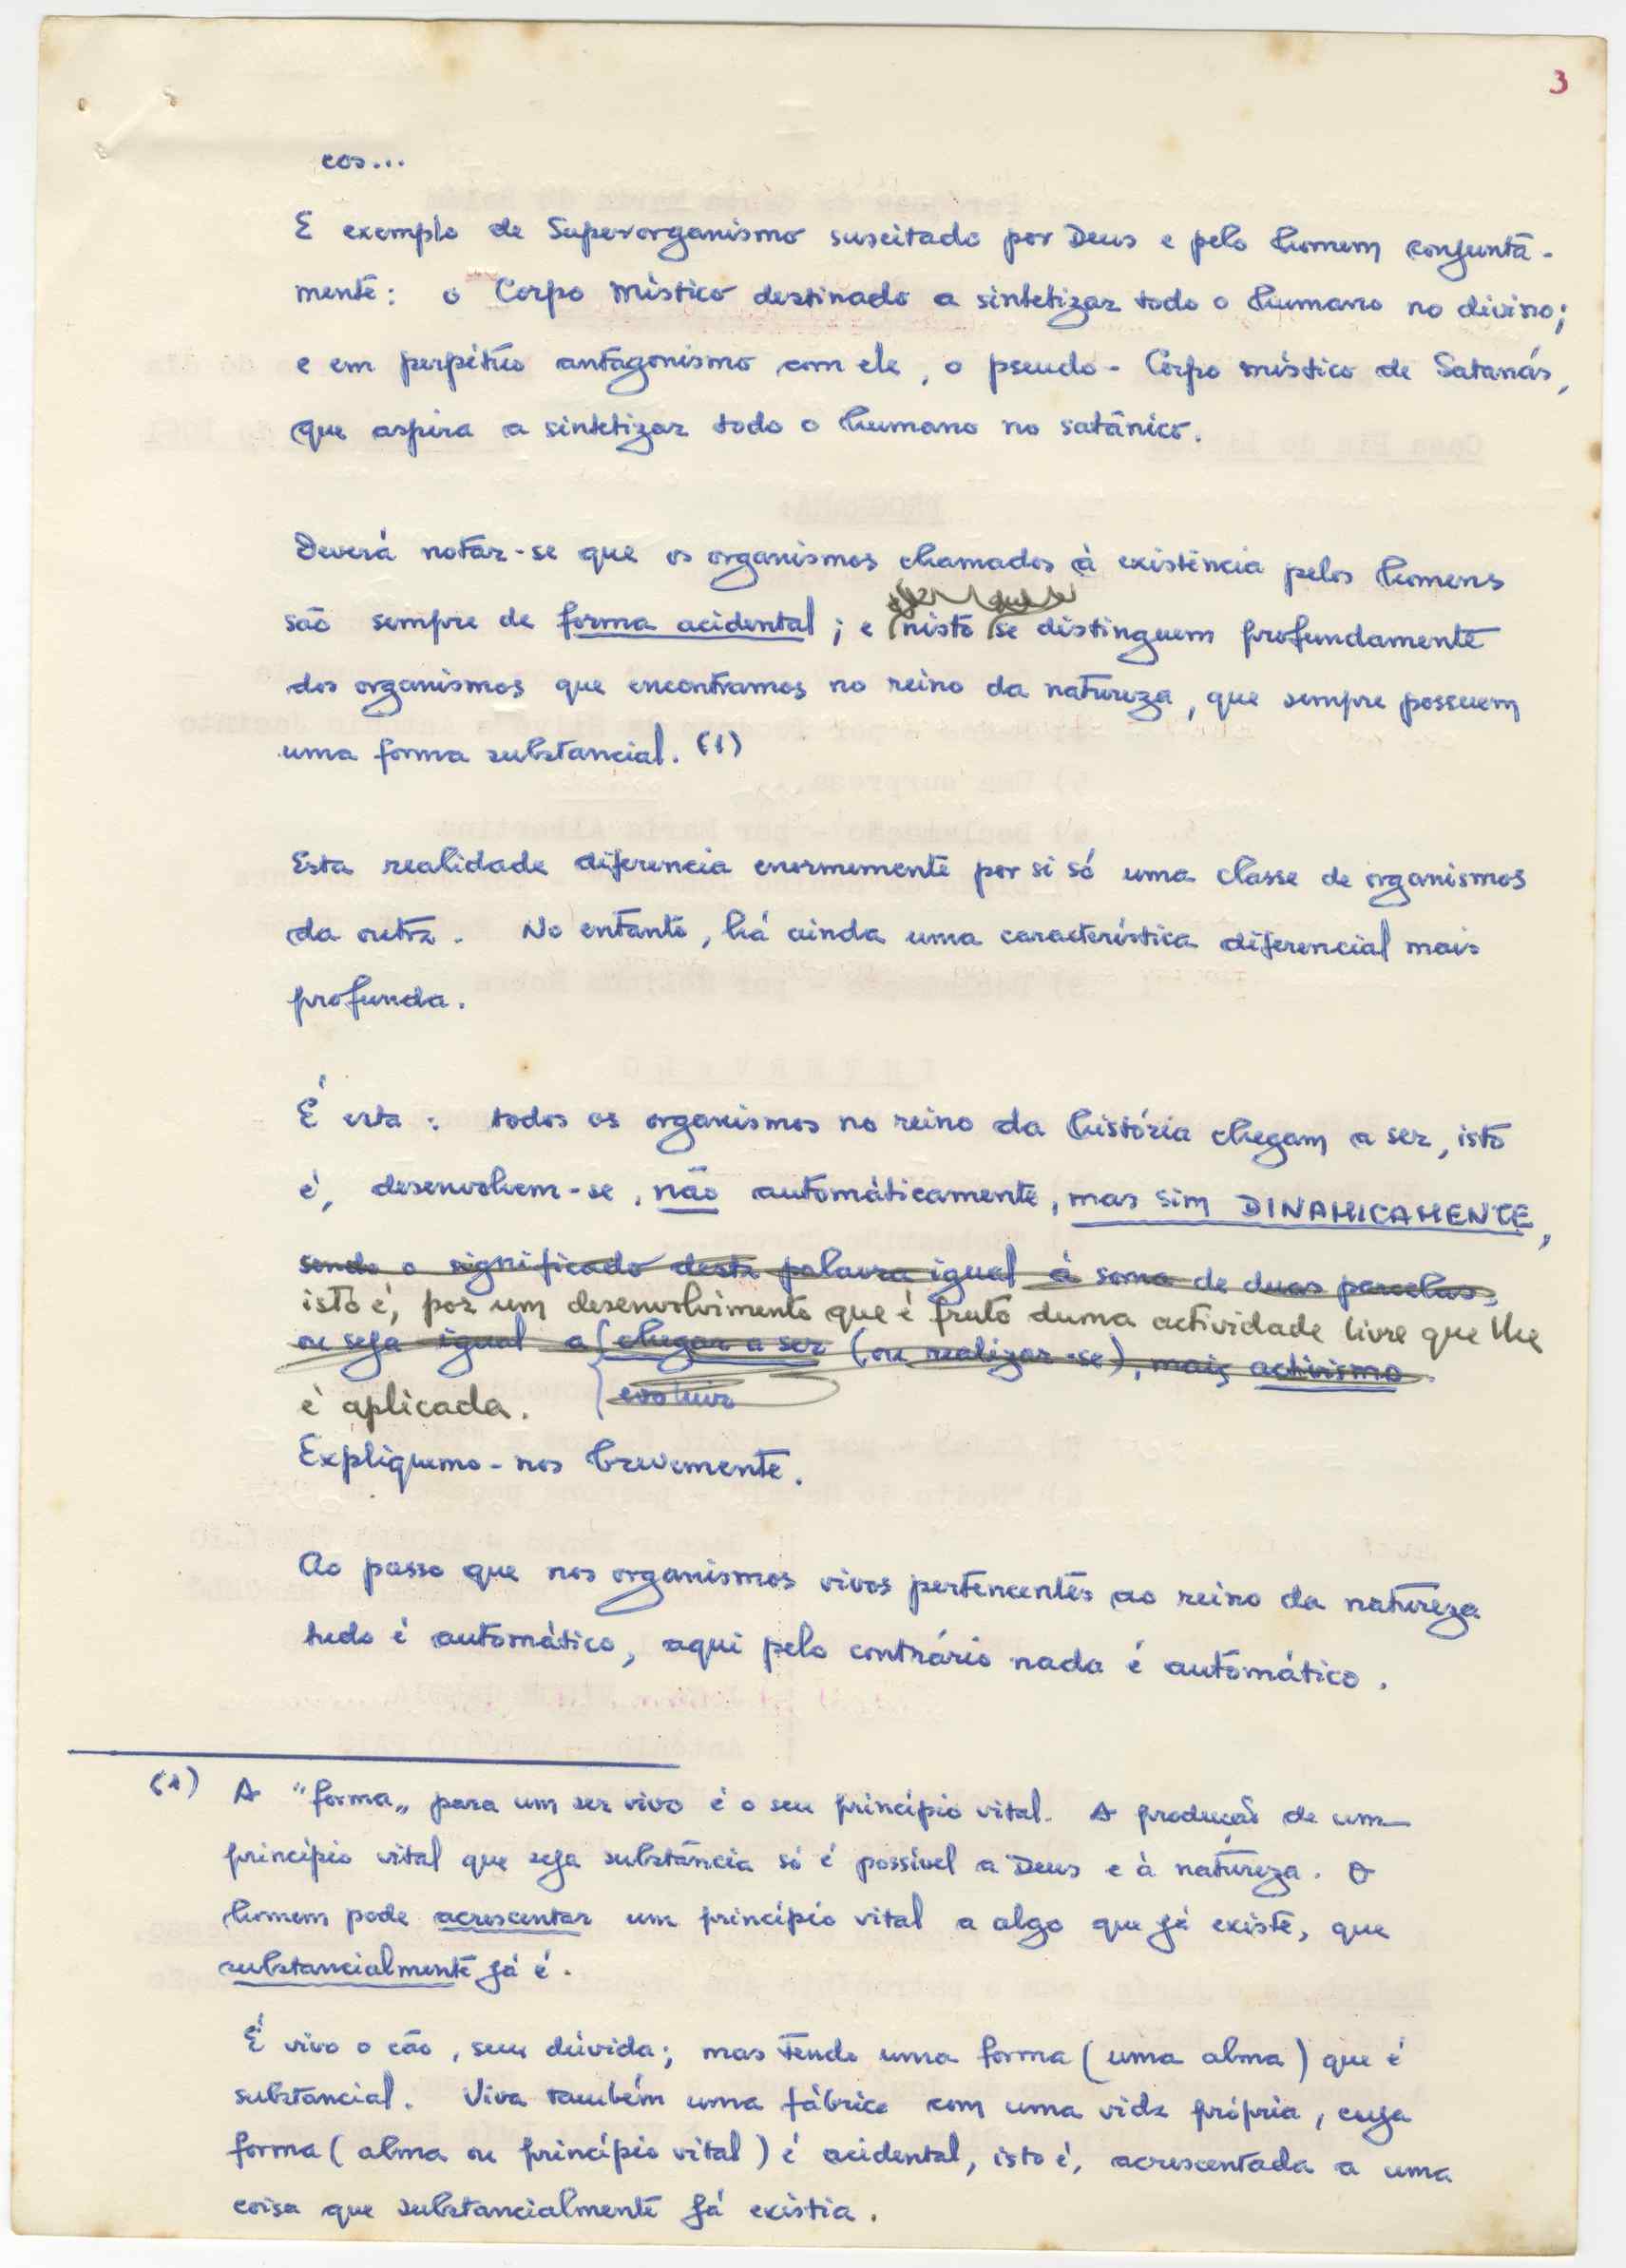 3
cos...
E exemplo de Superorganismo suscitado por Deus e pelo homem conjunta-
mente: o Corpo Místico destinado a sintetizar todo o humano no divino;
e em perpétuo antagonismo com ele, o pseudo-Corpo místico de Satanás,
que aspira a sintetizar todo o humano no satânico.
Deverá notar-se que os organismos chamados à existência pelos homens
são sempre de forma acidental; e nisto se distinguem profundamente
dos organismos que encontramos no reino da natureza, que sempre possuem
uma forma substancial. (1)
Esta realidade diferencia enormemente por si só uma classe de organismos
da outra. No entanto, há ainda uma característica diferencial mais
profunda.
É esta: todos os organismos no reino da história chegam a ser, isto
é, desenvolvem-se, não automàticamente, mas sim DINAMICAMENTE,
sendo o significado desta palavra igual à soma de duas parcelas,
isto é, por um desenvolvimento que é fruto duma actividade livre que lhe
ou seja igual a { chegar a ser (ou realizar-se), mais activismo.
é aplicada. { evoluir
Expliquemo-nos brevemente.
Ao passo que nos organismos vivos pertencentes ao reino da natureza
tudo é automático, aqui pelo contrário nada é automático.
(1) A "forma" para um ser vivo é o seu princípio vital. A produção de um
princípio vital que seja substância só é possível a Deus e à natureza. O
homem pode acrescentar um princípio vital a algo que já existe, que
substancialmente já é.
É vivo o cão, sem dúvida; mas tendo uma forma (uma alma) que é
substancial. Viva também uma fábrica com uma vida própria, cuja
forma (alma ou princípio vital) é acidental, isto é, acrescentada a uma
coisa que substancialmente já existia.